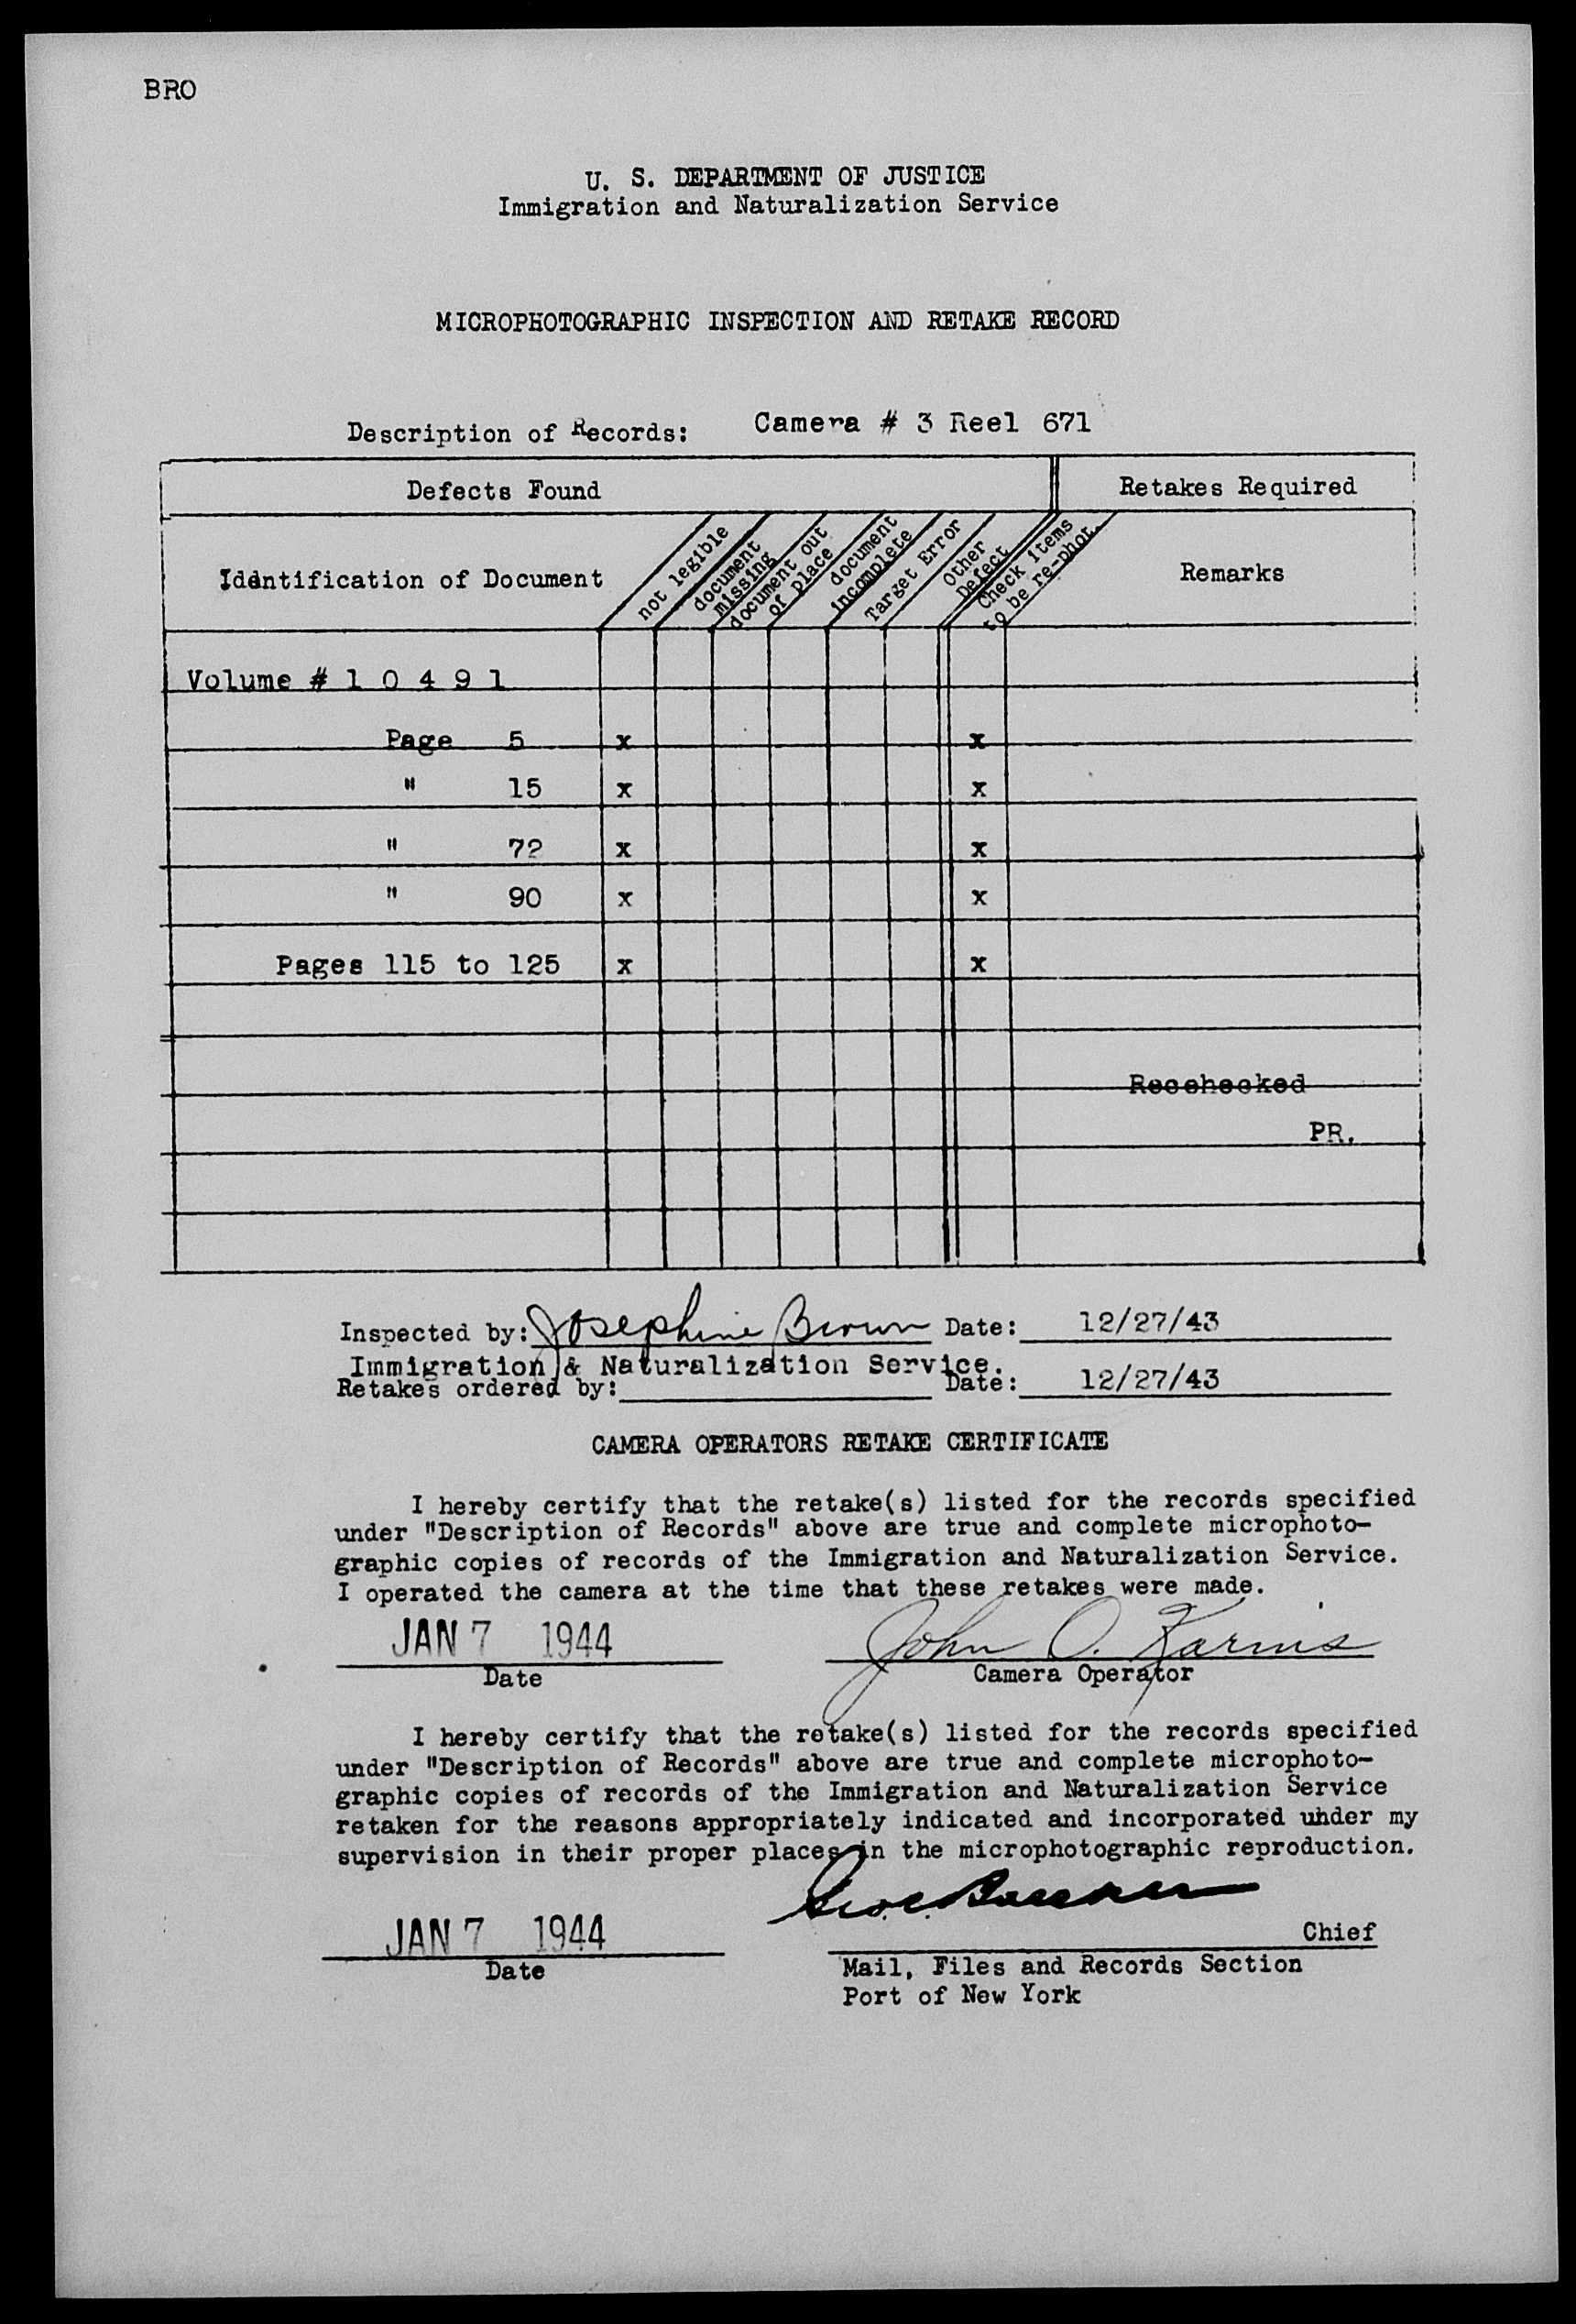 BRO
U. S. DEPARTMENT OF JUSTICE
Immigration and Naturalization Service
MICROPHOTOGRAPHIC INSPECTION AND RETAKE RECORD
Description of Records: Camera # 3 Reel 671
Defects Found Retakes Required
Idantification of Document not legible document missing document out of place document incomplete Target Error Other Defect Check items to be re-phot. Remarks
Volume # 1 0 4 9 1
Page 5 x x
" 15 x x
" 72 x x
" 90 x x
Pages 115 to 125 x x
Recchecked
PR.
Inspected by: Josephine Brown Date: 12/27/43
Immigration & Naturalization Service.
Retakes ordered by: Date: 12/27/43
CAMERA OPERATORS RETAKE CERTIFICATE
I hereby certify that the retake(s) listed for the records specified
under "Description of Records" above are true and complete microphoto-
graphic copies of records of the Immigration and Naturalization Service.
I operated the camera at the time that these retakes were made.
JAN 7 1944 John O. Karins
Date Camera Operator
I hereby certify that the retake(s) listed for the records specified
under "Description of Records" above are true and complete microphoto-
graphic copies of records of the Immigration and Naturalization Service
retaken for the reasons appropriately indicated and incorporated under my
supervision in their proper places in the microphotographic reproduction.
JAN 7 1944 Chief
Date Mail, Files and Records Section
Port of New York